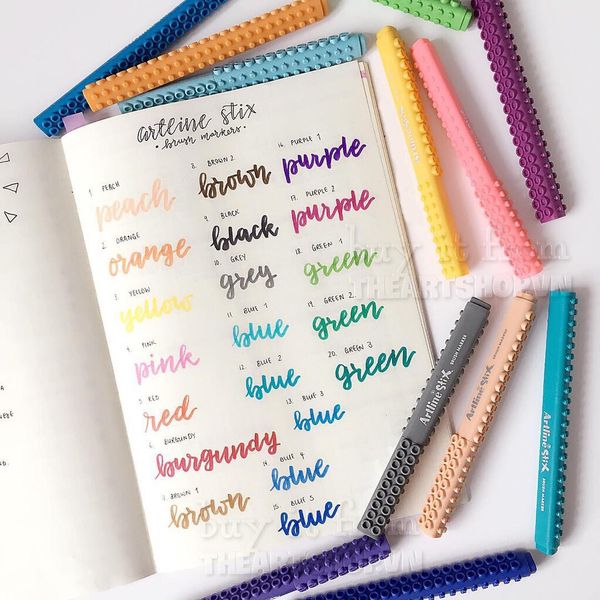 artline stix
• brush markers •
1. PEACH
peach
2. ORANGE
orange
3. YELLOW
yellow
4. PINK
pink
5. RED
red
6. BURGUNDY
burgundy
7. BROWN 1
brown
8. BROWN 2
brown
9. BLACK
black
10. GREY
grey
11. BLUE 1
blue
12. BLUE 2
blue
13. BLUE 3
blue
14. BLUE 4
blue
15. BLUE 5
blue
16. PURPLE 1
purple
17. PURPLE 2
purple
18. GREEN 1
green
19. GREEN 2
green
20. GREEN 3
green
Artline Stix BRUSH MARKER
Artline Stix BRUSH MARKER
Artline Stix BRUSH MARKER
buy it from
THEARTSHOP.VN
buy it from
THEARTSHOP.VN